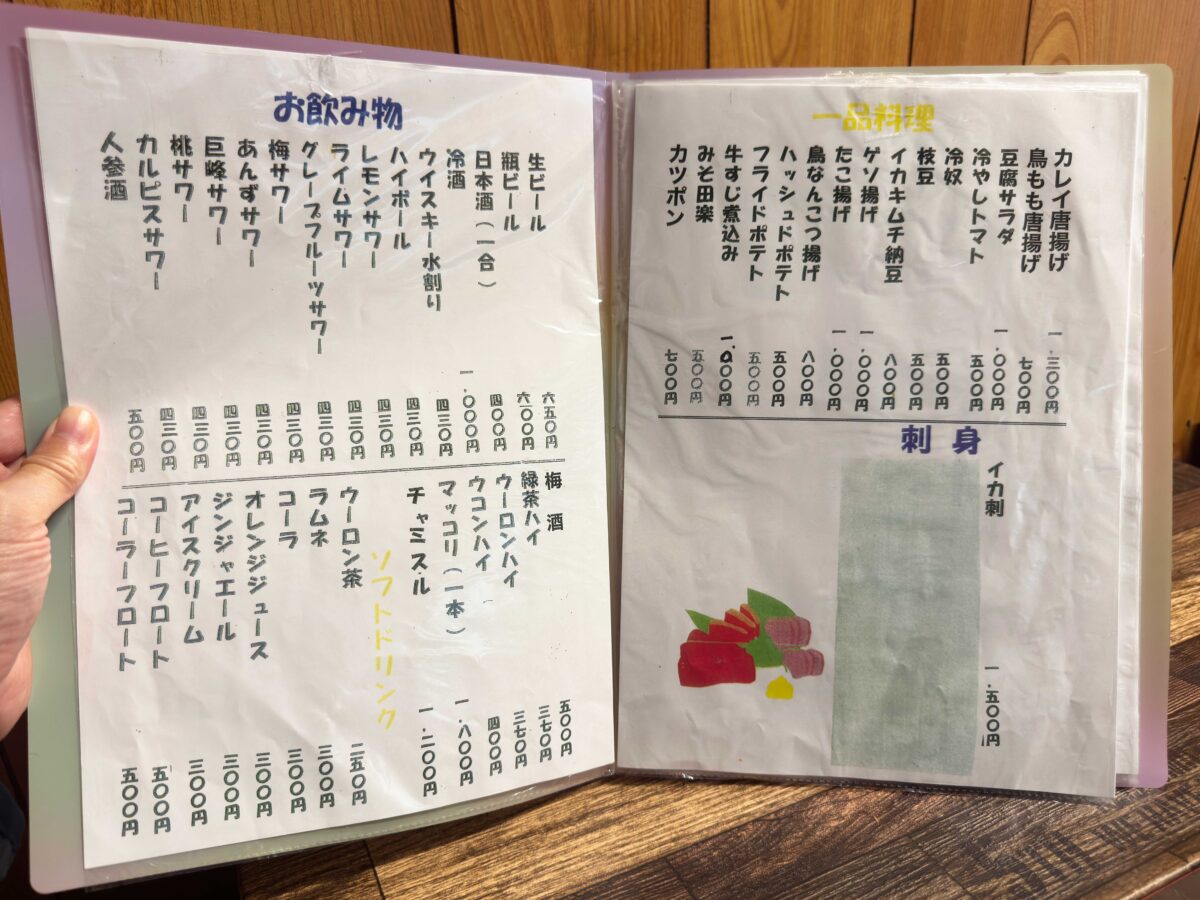 一品料理
カレイ唐揚げ 一.三〇〇円
鳥もも唐揚げ 七〇〇円
豆腐サラダ 一.〇〇〇円
冷やしトマト 五〇〇円
冷奴 五〇〇円
枝豆 五〇〇円
イカキムチ納豆 八〇〇円
ゲソ揚げ 一.〇〇〇円
たこ揚げ 一.〇〇〇円
鳥なんこつ揚げ 八〇〇円
ハッシュドポテト 五〇〇円
フライドポテト 五〇〇円
牛すじ煮込み 一.〇〇〇円
みそ田楽 五〇〇円
カツポン 七〇〇円
刺身
イカ刺 一.五〇〇円
お飲み物
生ビール 六五〇円
瓶ビール 六〇〇円
日本酒(一合) 四〇〇円
冷酒 一.〇〇〇円
ウイスキー水割り 四三〇円
ハイボール 四三〇円
レモンサワー 四三〇円
ライムサワー 四三〇円
グレープフルーツサワー 四三〇円
梅サワー 四三〇円
あんずサワー 四三〇円
巨峰サワー 四三〇円
桃サワー 四三〇円
カルピスサワー 四三〇円
人参酒 五〇〇円
梅酒 五〇〇円
緑茶ハイ 三七〇円
ウーロンハイ 三七〇円
ウコンハイ 四〇〇円
マッコリ(一本) 一.八〇〇円
チャミスル 一.二〇〇円
ソフトドリンク
ウーロン茶 二五〇円
ラムネ 三〇〇円
コーラ 三〇〇円
オレンジジュース 三〇〇円
ジンジャエール 三〇〇円
アイスクリーム 三〇〇円
コーヒーフロート 五〇〇円
コーラーフロート 五〇〇円